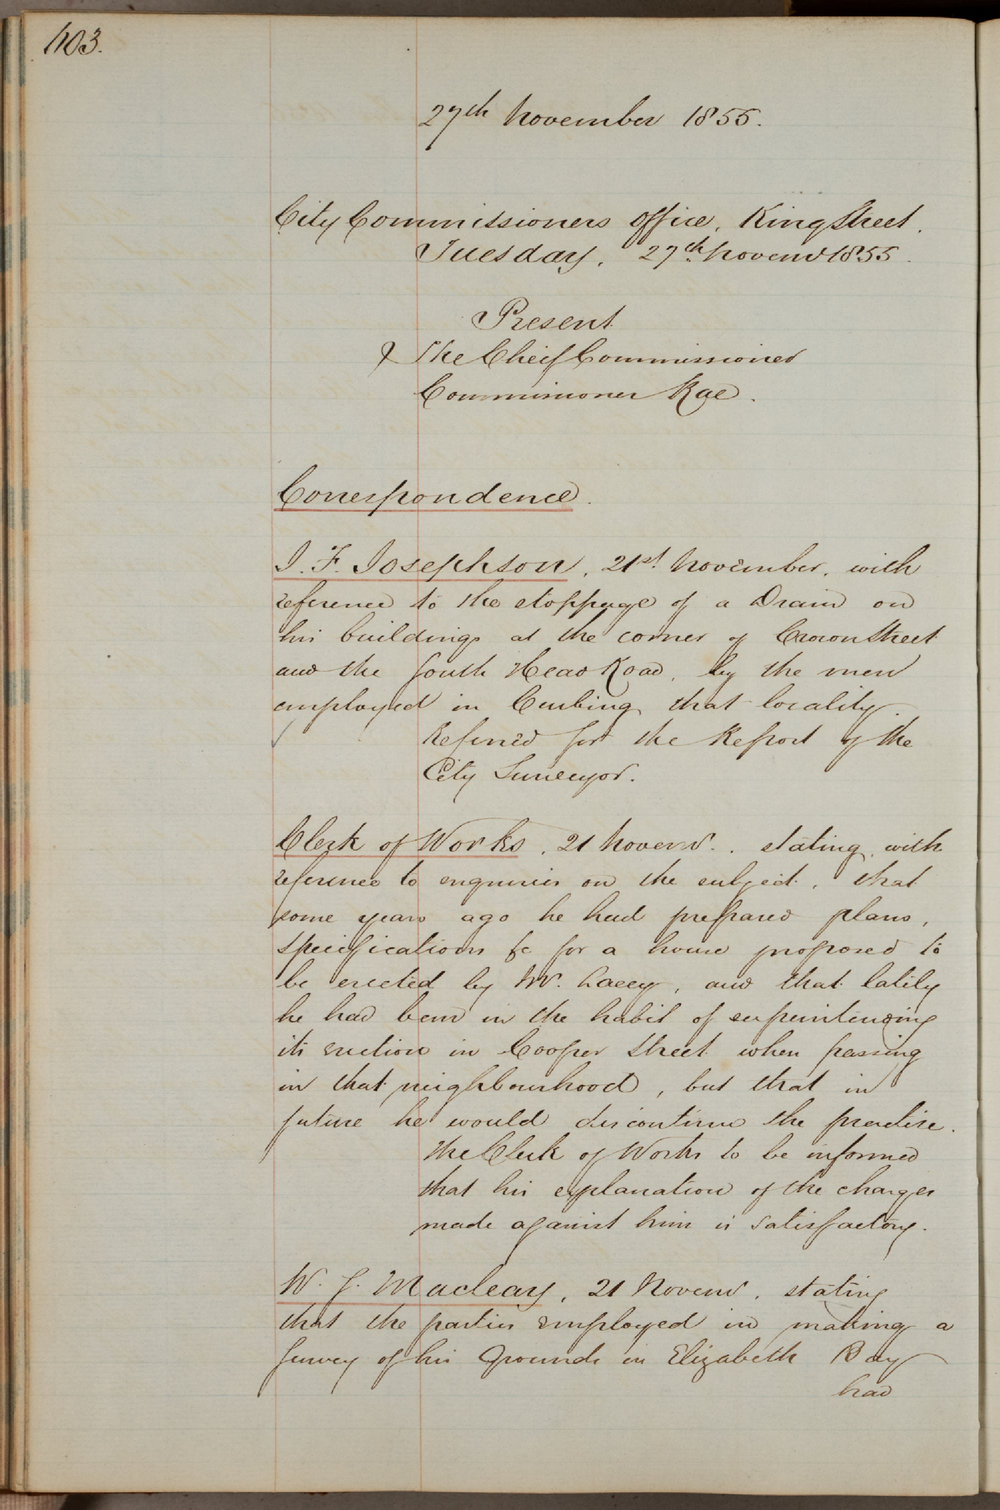 403.
27th November 1855.
City Commissioners Office, King Street.
Tuesday, 27th Novemr 1855.
Present
& The Cheif Commissioner
Commissioner Rae.
Correspondence.
J. F. Josephson, 21st November, with
reference to the stoppage of a Drain on
his buildings at the corner of Crown Street
and the South Head Road, by the men
employed in Curbing that locality.
Referred for the Report of the
City Surveyor.
Clerk of Works, 21 Novemr. stating, with
reference to enquiries on the subject, that
some years ago he had prepared plans,
specifications &c for a house proposed to
be erected by Mr. Lacey, and that lately
he had been in the habit of superintending
its erection in Cooper Street when passing
in that neighbourhood, but that in
future he would discontinue the practise.
The Clerk of Works to be informed
that his explanation of the charges
made against him is satisfactory.
W. J. Macleay, 21 Novemr, stating
that the parties employed in making a
survey of his Grounds in Elizabeth Bay
had